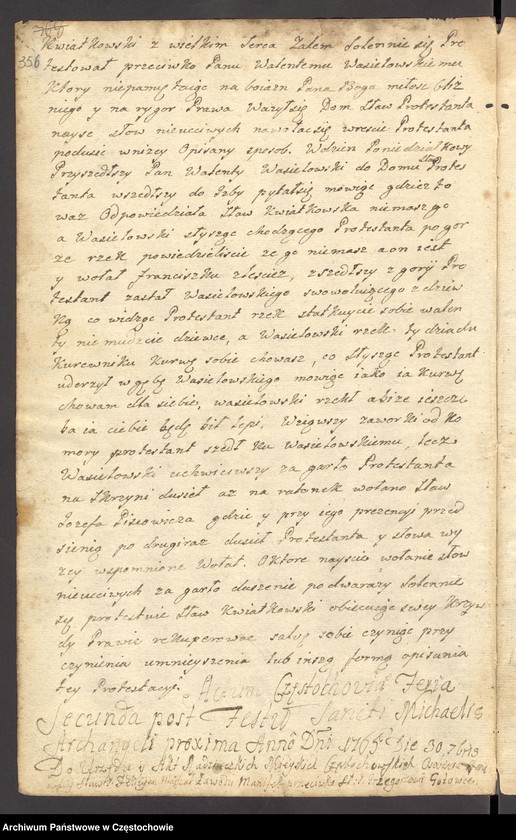 356
Kwiatkowski z wielkim serca zalem solennie się Pro
testował przeciwko Panu Walentemu Wasielowskiemu
Ktory niepamętaiąc na boiazn Pana Boga miłosc bliz
niego y na rygor Prawa Wazył się Dom Sław Protestanta
nayśc słow nieucciwych wrescie Protestanta
podusic w nizey Opisany sposob. W dzien Poniedziałkowy
Przyszedłszy Pan Walenty Wasielowski do Domu Sław Protes
tanta wszedłszy do Izby pytał się mowiąc gdziez to
waz Odpowiedziała Sław Kwiatkowska niemasz go
a Wasielowski słysząc chodzącego Protestanta po gor
ze rzek powiedzieliscie ze go niemasz a on iest
y wołał Franciszku zlescież, zszedłszy z gory Pro
testant zastał Wasielowskiego swowoluiącego z dziew
ką co widząc Protestant rzek statkuycie sobie walen
ty, nie dziewce, a Wasielowski rzekł ty dziadu
Kurewniku Kurwę sobie chowasz, co słysząc Protestant
uderzył w gębę Wasielowskiego mowiąc iako ia Kurwę
chowam dla siebie, wasielowski rzekł a bize ieszcze
ba ia ciebie będę bił lepi, Wziąwszy zaworki od Ko
mory protestant szedł ku Wasielowskiemu, lecz
Wasielowski uchwiciwszy za garło Protestanta
na skrzyni dusieł az na ratonek wołano Sław
Jozefa Pisiowicza gdzie y przy iego prezencyi przed
sienią po drugi raz dusieł Protestanta y słowa wy
zey wspomnione wołał. O ktore nayscie wołanie słow
nieucciwych za garło duszenie po dwa razy solennie
się protestuie Sław Kwiatkowski obiecuiąc swey Krzyw
dy Prawie rekuperowac salvę sobie czyniąc przy
czynienia umnieyszenia lub inszą formą opisania
tey Protestacyi. Actum Częstochoviæ Feria
Secunda post Festũ Sancti Michaelis
Archangeli proxima Anno Dni 1765 Die 30. 7bris
Do Urzędu y Akt Radzieckich Mieyskich Częstochowskich
Archiwum Państwowe w Częstochowie